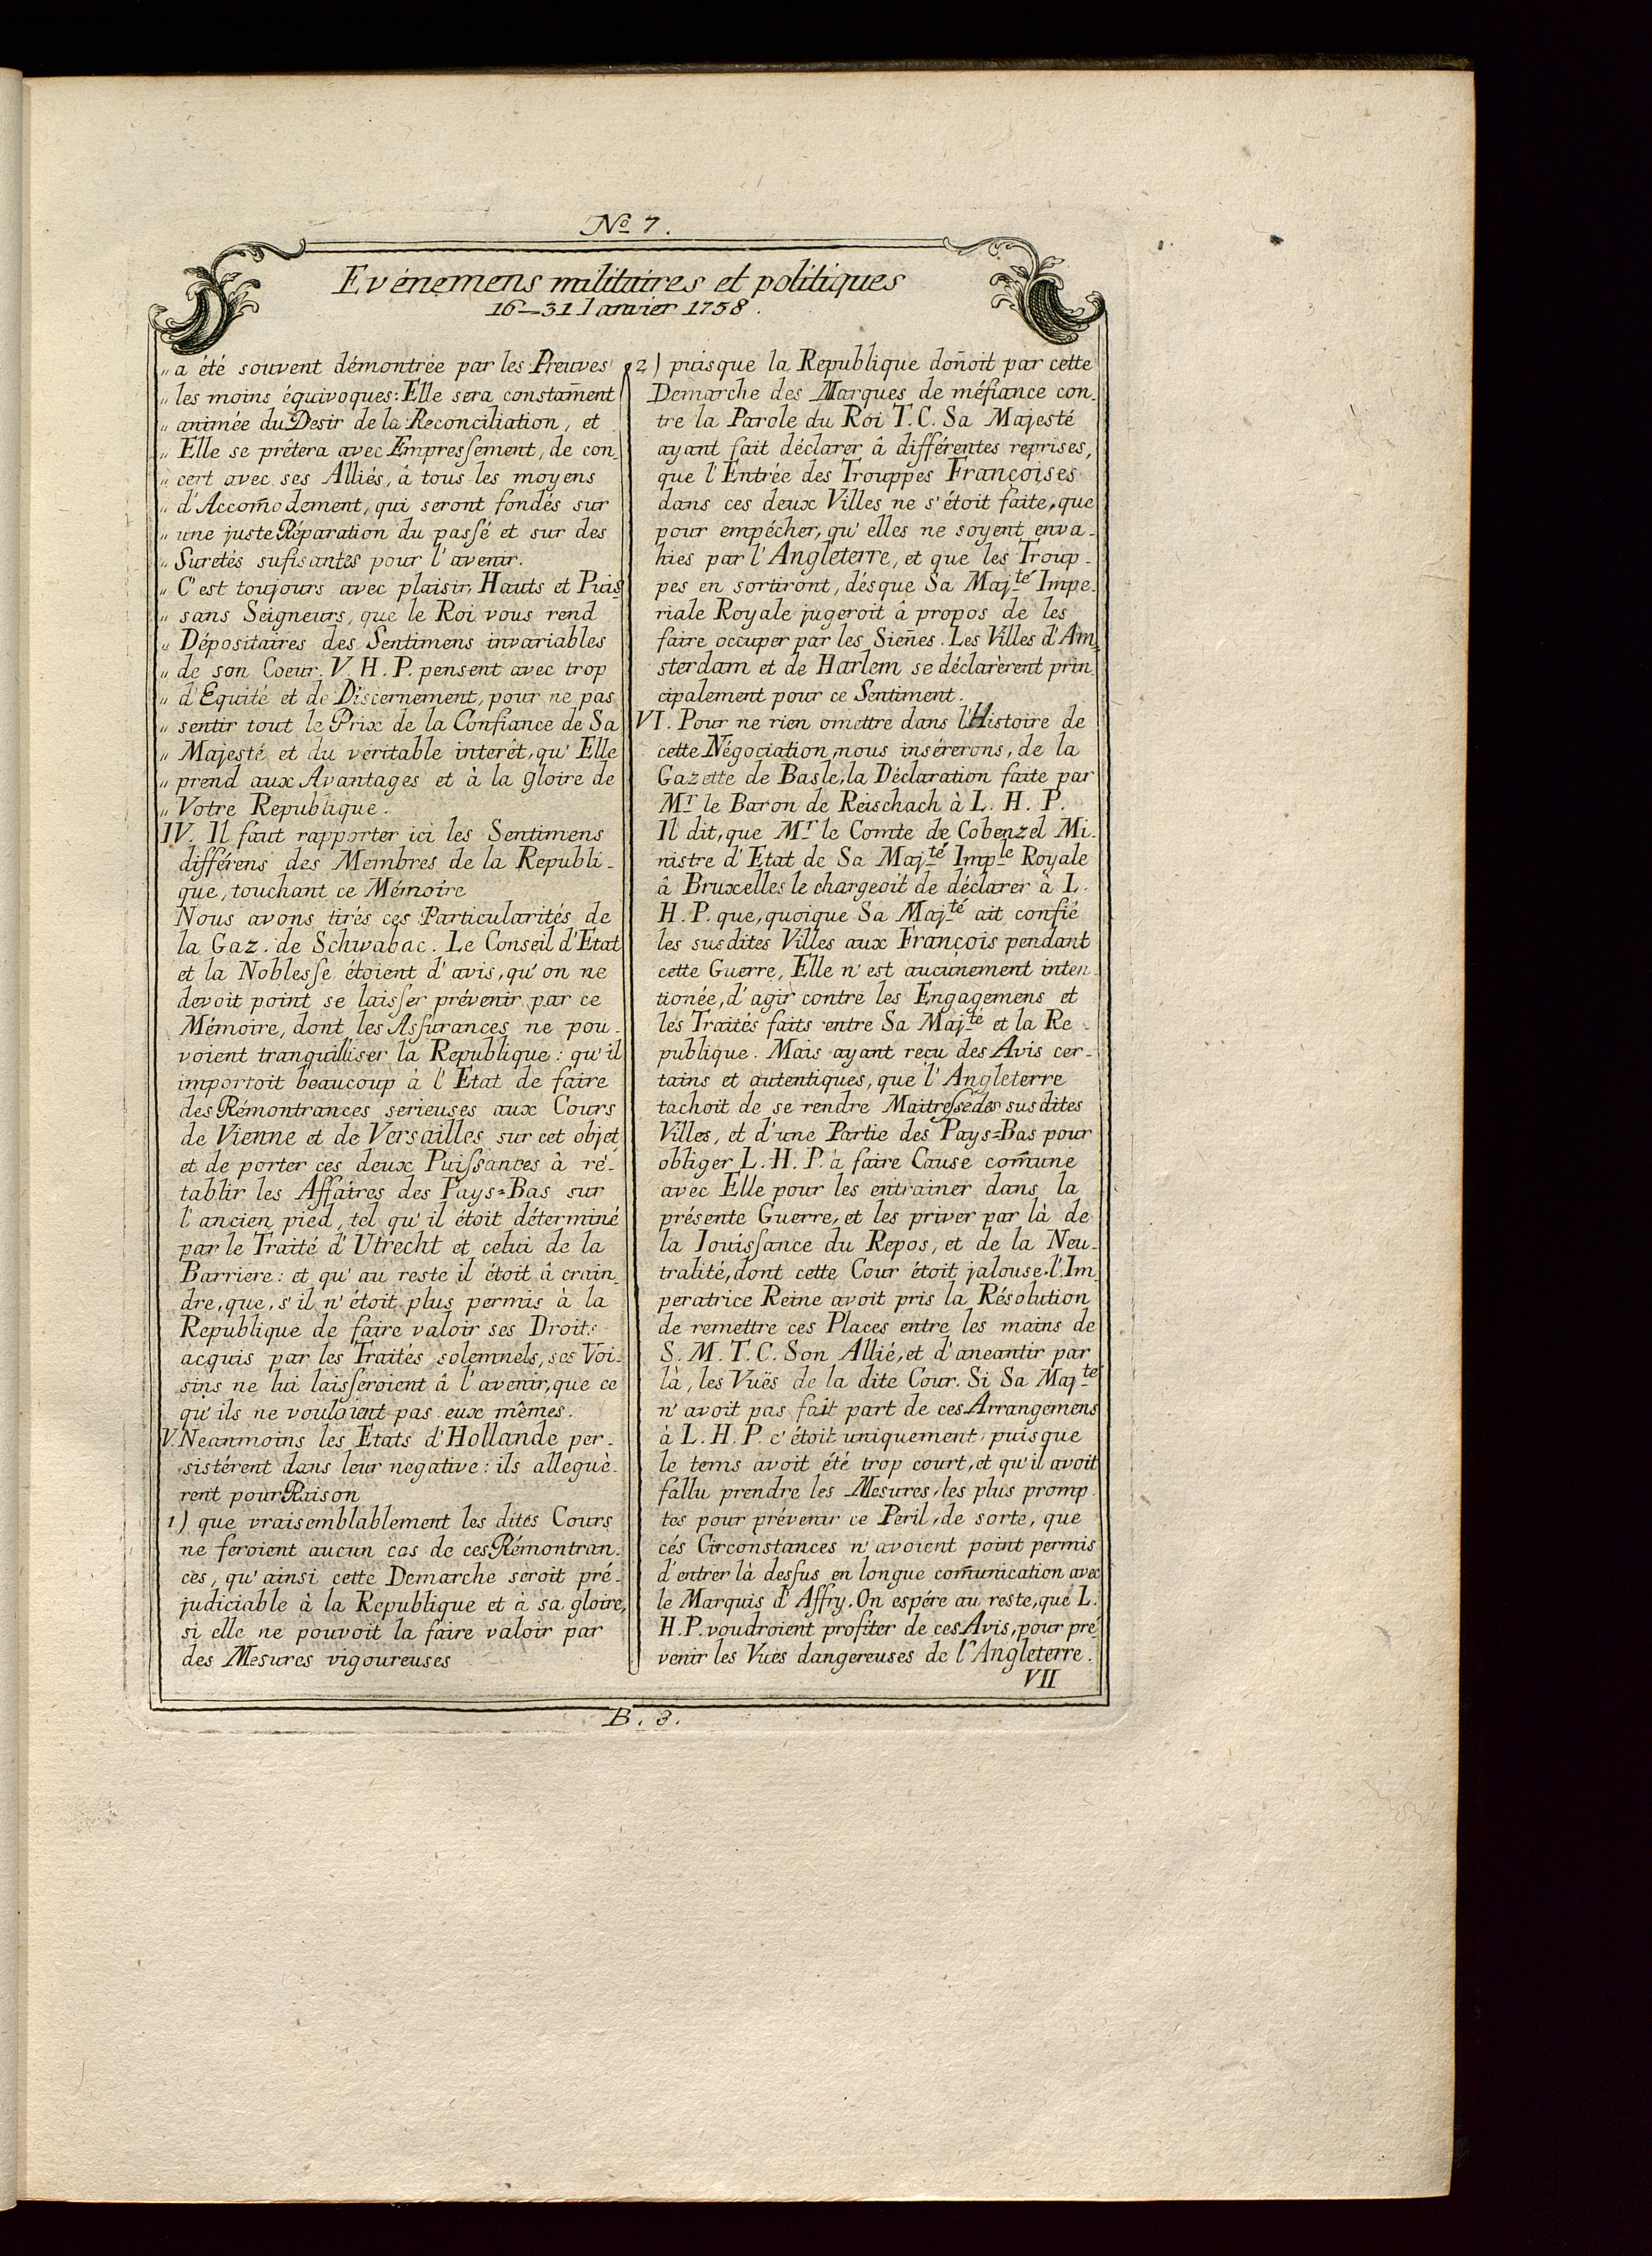 No 7.
Evénemens militaires et politiques
16–31 Ianvier 1758.
„ a été souvent démontrée par les Preuves
„ les moins équivoques: Elle sera constam̄ent
„ animée du Desir de la Reconciliation, et
„ Elle se prêtera avec Empreſsement, de con-
„ cert avec ses Alliés, â tous les moyens
„ d'Accom̄odement, qui seront fondés sur
„ une juste Réparation du paſsé et sur des
„ Suretés sufisantes pour l'avenir.
„ C'est toujours avec plaisir, Hauts et Puis-
„ sans Seigneurs, que le Roi vous rend
„ Dépositaires des Sentimens invariables
„ de son Coeur. V. H. P. pensent avec trop
„ d'Equité et de Discernement, pour ne pas
„ sentir tout le Prix de la Confiance de Sa
„ Majesté et du véritable interêt, qu'Elle
„ prend aux Avantages et à la gloire de
„ Votre Republique.
IV. Il faut rapporter ici les Sentimens
différens des Membres de la Republi-
que, touchant ce Mémoire
Nous avons tirés ces Particularités de
la Gaz. de Schwabac. Le Conseil d'Etat
et la Nobleſse étoient d'avis, qu'on ne
devoit point se laiſser prévenir par ce
Mémoire, dont les Aſsurances ne pou-
voient tranquilliser la Republique: qu'il
importoit beaucoup à l'Etat de faire
des Rémontrances serieuses aux Cours
de Vienne et de Versailles sur cet objet
et de porter ces deux Puiſsances à ré-
tablir les Affaires des Pays=Bas sur
l'ancien pied, tel qu'il étoit déterminé
par le Traité d'Utrecht et celui de la
Barriere: et qu'au reste il étoit â crain-
dre, que, s'il n'étoit plus permis à la
Republique de faire valoir ses Droits
acquis par les Traités solemnels, ses Voi-
sins ne lui laiſseroient â l'avenir, que ce
qu'ils ne vouloient pas eux mêmes.
V. Neanmoins les Etats d'Hollande per-
sistérent dans leur negative: ils alleguè-
rent pour Raison
1) que vraisemblablement les dites Cours
ne feroient aucun cas de ces Rémontran-
ces, qu'ainsi cette Demarche seroit pré-
judiciable à la Republique et à sa gloire,
si elle ne pouvoit la faire valoir par
des Mesures vigoureuses
2) puisque la Republique don̄oit par cette
Demarche des Marques de méfiance con-
tre la Parole du Roi T. C. Sa Majesté
ayant fait déclarer â différentes reprises,
que l'Entrée des Trouppes Françoises
dans ces deux Villes ne s'étoit faite, que
pour empécher, qu'elles ne soyent enva-
hies par l'Angleterre, et que les Troup-
pes en sortiront, désque Sa Maj.té Impe-
riale Royale jugeroit â propos de les
faire occuper par les Sien̄es. Les Villes d'Am-
sterdam et de Harlem se déclarèrent prin-
cipalement pour ce Sentiment.
VI. Pour ne rien omettre dans l'Histoire de
cette Négociation, nous insérerons, de la
Gazette de Basle, la Déclaration faite par
Mr le Baron de Reischach à L. H. P.
Il dit, que Mr le Comte de Cobenzel Mi-
nistre d'Etat de Sa Maj.té Imp.le Royale
â Bruxelles le chargeoit de déclarer à L.
H. P. que, quoique Sa Maj.té ait confié
les susdites Villes aux François pendant
cette Guerre, Elle n'est aucunement inten-
tionée, d'agir contre les Engagemens et
les Traités faits entre Sa Maj.té et la Re-
publique. Mais ayant reçu des Avis cer-
tains et autentiques, que l'Angleterre
tachoit de se rendre Maitreſse des susdites
Villes, et d'une Partie des Pays=Bas pour
obliger L. H. P. à faire Cause com̄une
avec Elle pour les entrainer dans la
présente Guerre, et les priver par là de
la Iouiſsance du Repos, et de la Neu-
tralité, dont cette Cour étoit jalouse. l'Im-
peratrice Reine avoit pris la Résolution
de remettre ces Places entre les mains de
S. M. T. C. Son Allié, et d'aneantir par
là, les Vuës de la dite Cour. Si Sa Maj.té
n'avoit pas fait part de ces Arrangemens
à L. H. P. c'étoit uniquement, puisque
le tems avoit été trop court, et qu'il avoit
fallu prendre les Mesures, les plus promp-
tes pour prévenir ce Peril, de sorte, que
cés Circonstances n'avoient point permis
d'entrer là deſsus en longue com̄unication avec
le Marquis d'Affry. On espére au reste, que L.
H. P. voudroient profiter de ces Avis, pour pré-
venir les Vues dangereuses de l'Angleterre.
VII
B. 3.